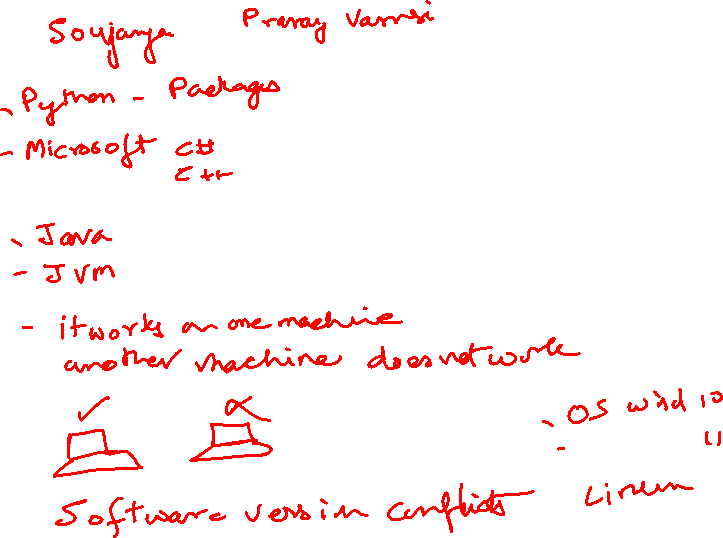 Soujanya Pranay Vamsi
- Python - Packages
- Microsoft C#
C++
- Java
- JVM
- it works on one machine
another machine does not work
- OS wind 10
- 11
Software version conflicts Linux